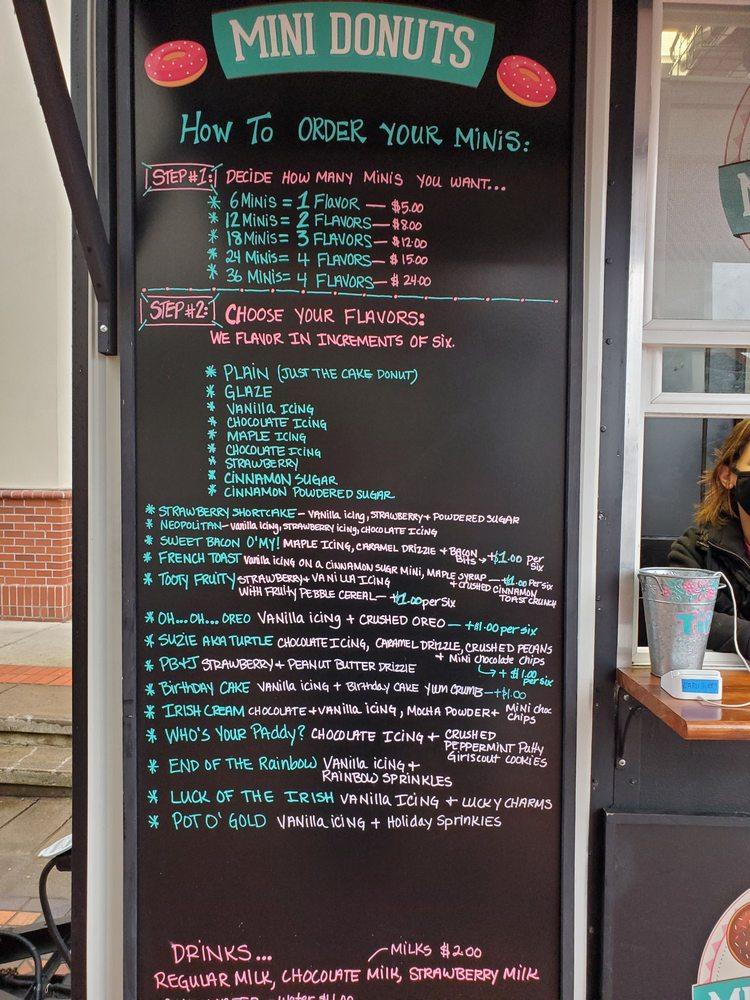 MINI DONUTS
HOW TO ORDER YOUR MINIS:
STEP#1: DECIDE HOW MANY MINIS YOU WANT...
* 6 MINIS = 1 FLAVOR — $5.00
* 12 MINIS = 2 FLAVORS — $8.00
* 18 MINIS = 3 FLAVORS — $12.00
* 24 MINIS = 4 FLAVORS — $15.00
* 36 MINIS = 4 FLAVORS — $24.00
STEP#2: CHOOSE YOUR FLAVORS:
WE FLAVOR IN INCREMENTS OF SIX.
* PLAIN (JUST THE CAKE DONUT)
* GLAZE
* VANILLA ICING
* CHOCOLATE ICING
* MAPLE ICING
* CHOCOLATE ICING
* STRAWBERRY
* CINNAMON SUGAR
* CINNAMON POWDERED SUGAR
* STRAWBERRY SHORTCAKE — VANILLA ICING, STRAWBERRY + POWDERED SUGAR
* NEOPOLITAN — VANILLA ICING, STRAWBERRY ICING, CHOCOLATE ICING
* SWEET BACON O'MY! MAPLE ICING, CARAMEL DRIZZLE + BACON BITS → +$1.00 PER SIX
* FRENCH TOAST VANILLA ICING ON A CINNAMON SUGR MINI, MAPLE SYRUP — +$1.00 PER SIX
+ CRUSHED CINNAMON TOAST CRUNCH
* TOOTY FRUITY STRAWBERRY + VANILLA ICING
WITH FRUITY PEBBLE CEREAL — +$1.00 PER SIX
* OH...OH... OREO VANILLA ICING + CRUSHED OREO — +$1.00 PER SIX
* SUZIE AKA TURTLE CHOCOLATE ICING, CARAMEL DRIZZLE, CRUSHED PECANS
+ MINI CHOCOLATE CHIPS
→ + $1.00 PER SIX
* PB+J STRAWBERRY + PEANUT BUTTER DRIZZLE
* BIRTHDAY CAKE VANILLA ICING + BIRTHDAY CAKE YUM CRUMB — +$1.00
* IRISH CREAM CHOCOLATE + VANILLA ICING, MOCHA POWDER + MINI CHOC CHIPS
* WHO'S YOUR PADDY? CHOCOLATE ICING + CRUSHED
PEPPERMINT PATTY
GIRLSCOUT COOKIES
* END OF THE RAINBOW VANILLA ICING +
RAINBOW SPRINKLES
* LUCK OF THE IRISH VANILLA ICING + LUCKY CHARMS
* POT O' GOLD VANILLA ICING + HOLIDAY SPRINKLES
DRINKS...
MILKS $2.00
REGULAR MILK, CHOCOLATE MILK, STRAWBERRY MILK